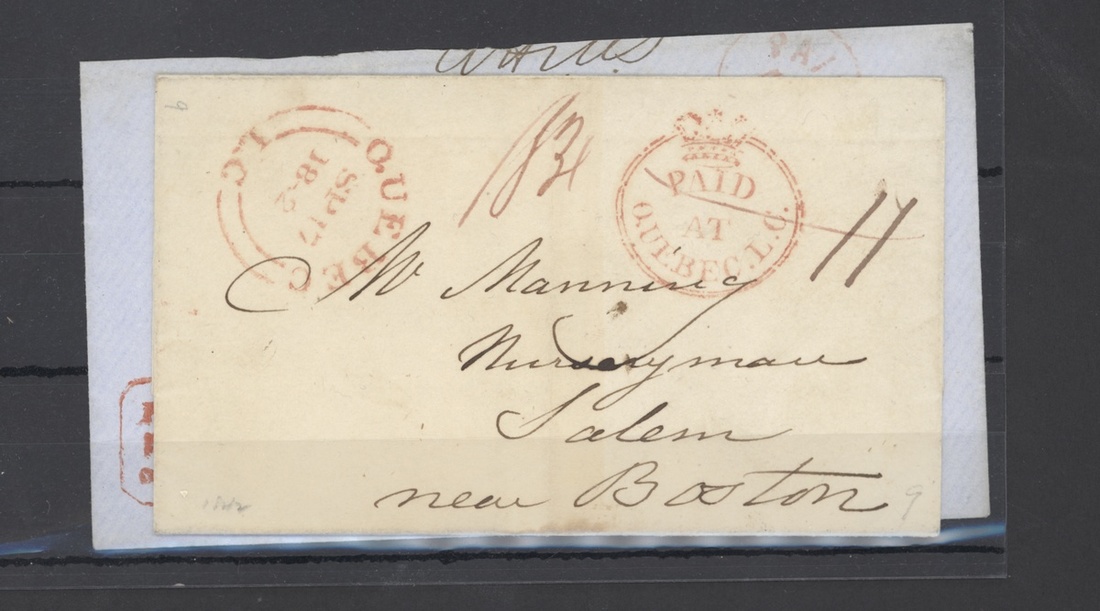 PA
QUEBEC
L.C
SP 17
1842
18¾
PAID
AT
QUÉBEC.L.C.
11
Mr Manning
Nurseryman
Salem
near Boston
1842
9